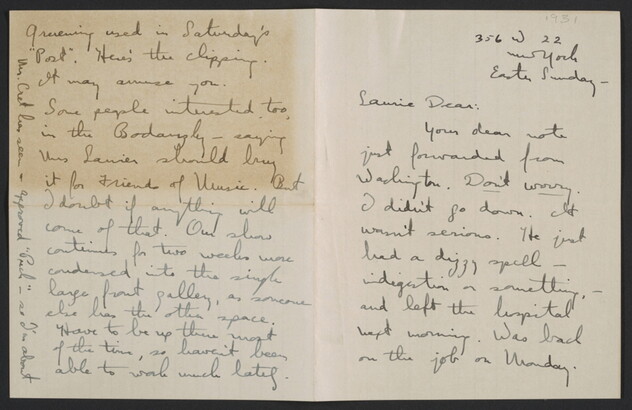 1931
356 W 22
New York
Easter Sunday —
Laurie Dear:
Your dear note
just forwarded from
Washington. Don't worry.
I didn't go down. It
wasn't serious. He just
had a dizzy spell —
indigestion or something, —
and left the hospital
next morning. Was back
on the job on Monday.
Gruening used in Saturday's
"Post". Here's the clipping.
It may amuse you.
Some people interested, too,
in the Bodansky — saying
Mrs Lanier should buy
it for Friends of Music. But
I doubt if anything will
come of that. Our show
continues for two weeks more
condensed into the single
large front gallery, as someone
else has the other space.
Have to be up there most
of the time, so haven't been
able to work much lately.
Mrs. Cret has seen + approved "Paul" — so I'm about